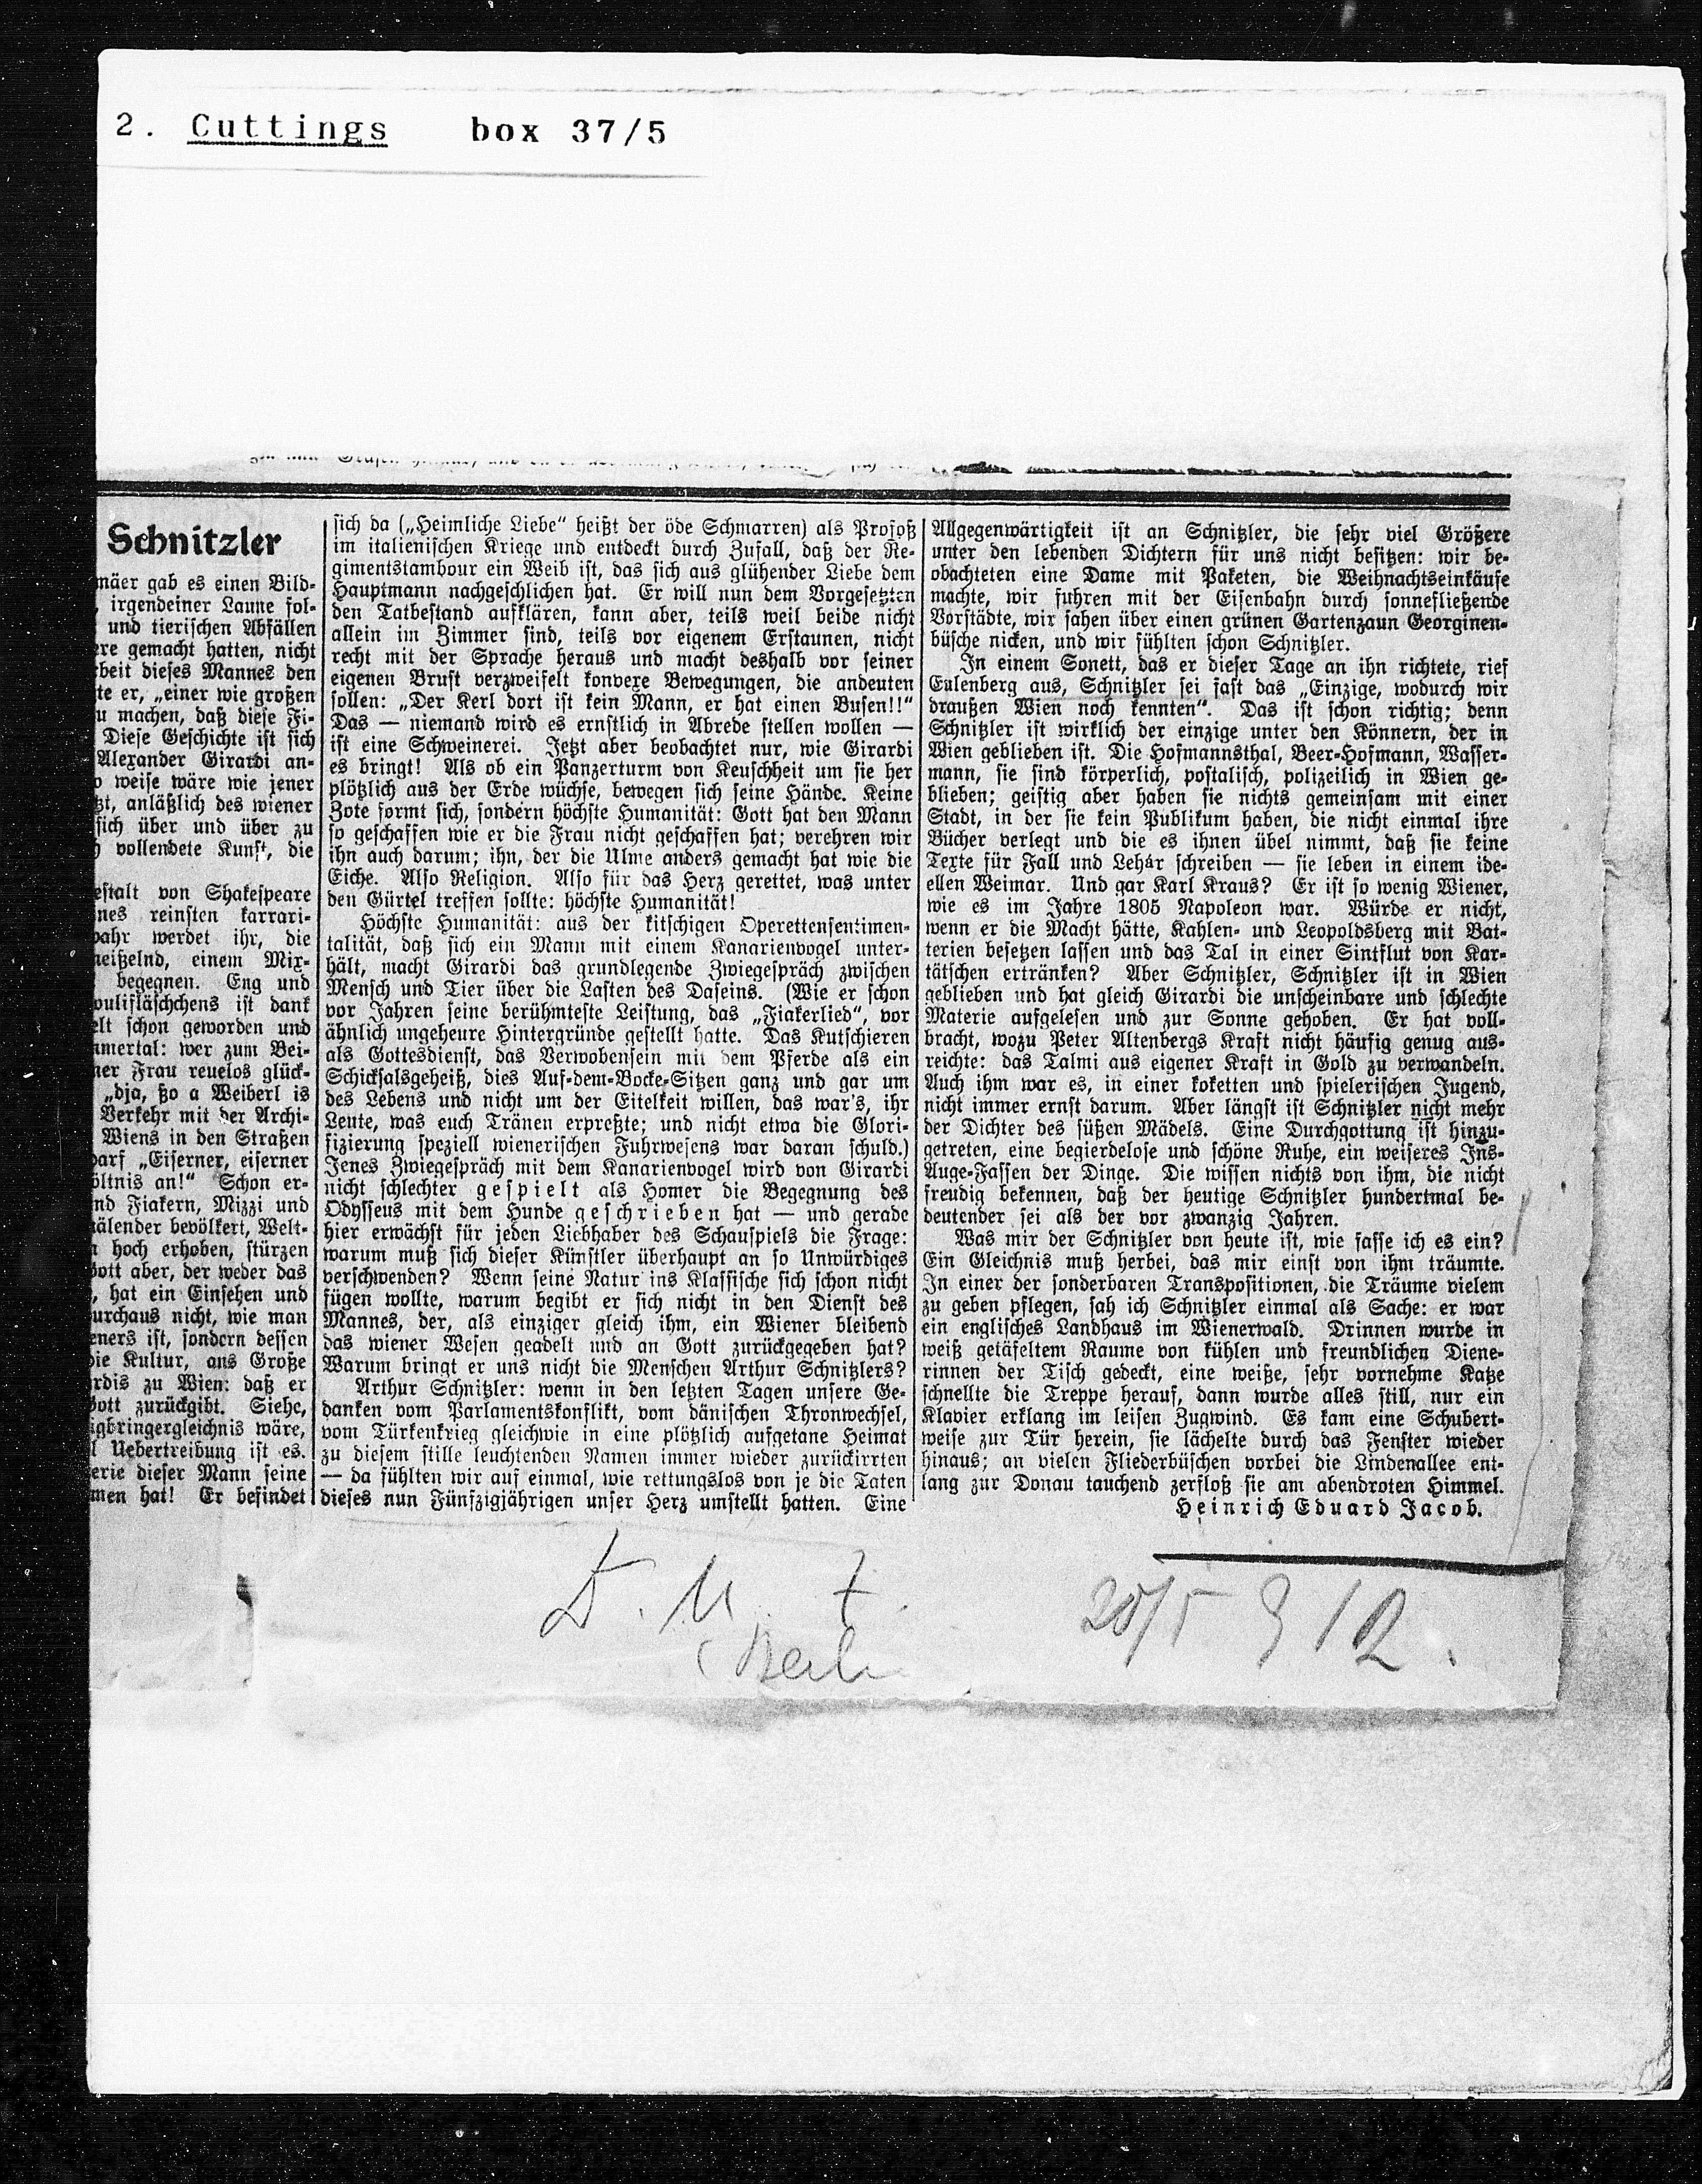 2. Cuttings box 37/5
Schnitzler
mäer gab es einen Bild-
irgendeiner Laune fol-
und tierischen Abfällen
ere gemacht hatten, nicht
rbeit dieses Mannes den
te er, „einer wie großen
u machen, daß diese Fi-
Diese Geschichte ist sich
Alexander Girardi an-
o weise wäre wie jener
zt, anläßlich des wiener
sich über und über zu
h vollendete Kunst, die
estalt von Shakespeare
nes reinsten karrari-
wahr werdet ihr, die
meißelnd, einem Mix-
begegnen. Eng und
oulifläschchens ist dank
elt schon geworden und
mmertal: wer zum Bei-
ner Frau reuelos glück-
„dja, ßo a Weiberl is
Verkehr mit der Archi-
Wiens in den Straßen
darf „Eiserner, eiserner
öltnis an!“ Schon er-
nd Fiakern, Mizzi und
älender bevölkert, Welt-
n hoch erhoben, stürzen
Gott aber, der weder das
, hat ein Einsehen und
urchaus nicht, wie man
eners ist, sondern dessen
die Kultur, ans Große
rdis zu Wien: daß er
Gott zurückgibt. Siehe,
igbringergleichnis wäre,
l Uebertreibung ist es.
erie dieser Mann seine
men hat! Er befindet
sich da („Heimliche Liebe“ heißt der öde Schmarren) als Profoß
im italienischen Kriege und entdeckt durch Zufall, daß der Re-
gimentstambour ein Weib ist, das sich aus glühender Liebe dem
Hauptmann nachgeschlichen hat. Er will nun dem Vorgesetzten
den Tatbestand aufklären, kann aber, teils weil beide nicht
allein im Zimmer sind, teils vor eigenem Erstaunen, nicht
recht mit der Sprache heraus und macht deshalb vor seiner
eigenen Brust verzweifelt konvexe Bewegungen, die andeuten
sollen: „Der Kerl dort ist kein Mann, er hat einen Busen!!“
Das — niemand wird es ernstlich in Abrede stellen wollen —
ist eine Schweinerei. Jetzt aber beobachtet nur, wie Girardi
es bringt! Als ob ein Panzerturm von Keuschheit um sie her
plötzlich aus der Erde wüchse, bewegen sich seine Hände. Keine
Zote formt sich, sondern höchste Humanität: Gott hat den Mann
so geschaffen wie er die Frau nicht geschaffen hat; verehren wir
ihn auch darum; ihn, der die Ulme anders gemacht hat wie die
Eiche. Also Religion. Also für das Herz gerettet, was unter
den Gürtel treffen sollte: höchste Humanität!
Höchste Humanität: aus der kitschigen Operettensentimen-
talität, daß sich ein Mann mit einem Kanarienvogel unter-
hält, macht Girardi das grundlegende Zwiegespräch zwischen
Mensch und Tier über die Lasten des Daseins. (Wie er schon
vor Jahren seine berühmteste Leistung, das „Fiakerlied“, vor
ähnlich ungeheure Hintergründe gestellt hatte. Das Kutschieren
als Gottesdienst, das Verwobensein mit dem Pferde als ein
Schicksalsgeheiß, dies Auf-dem-Bocke-Sitzen ganz und gar um
des Lebens und nicht um der Eitelkeit willen, das war's, ihr
Leute, was euch Tränen erpreßte; und nicht etwa die Glori-
fizierung speziell wienerischen Fuhrwesens war daran schuld.)
Jenes Zwiegespräch mit dem Kanarienvogel wird von Girardi
nicht schlechter gespielt als Homer die Begegnung des
Odysseus mit dem Hunde geschrieben hat — und gerade
hier erwächst für jeden Liebhaber des Schauspiels die Frage:
warum muß sich dieser Künstler überhaupt an so Unwürdiges
verschwenden? Wenn seine Natur ins Klassische sich schon nicht
fügen wollte, warum begibt er sich nicht in den Dienst des
Mannes, der, als einziger gleich ihm, ein Wiener bleibend
das wiener Wesen geadelt und an Gott zurückgegeben hat?
Warum bringt er uns nicht die Menschen Arthur Schnitzlers?
Arthur Schnitzler: wenn in den letzten Tagen unsere Ge-
danken vom Parlamentskonflikt, vom dänischen Thronwechsel,
vom Türkenkrieg gleichwie in eine plötzlich aufgetane Heimat
zu diesem stille leuchtenden Namen immer wieder zurückirrten
— da fühlten wir auf einmal, wie rettungslos von je die Taten
dieses nun Fünfzigjährigen unser Herz umstellt hatten. Eine
Allgegenwärtigkeit ist an Schnitzler, die sehr viel Größere
unter den lebenden Dichtern für uns nicht besitzen: wir be-
obachteten eine Dame mit Paketen, die Weihnachtseinkäufe
machte, wir fuhren mit der Eisenbahn durch sonnefließende
Vorstädte, wir sahen über einen grünen Gartenzaun Georginen-
büsche nicken, und wir fühlten schon Schnitzler.
In einem Sonett, das er dieser Tage an ihn richtete, rief
Eulenberg aus, Schnitzler sei fast das „Einzige, wodurch wir
draußen Wien noch kennten“. Das ist schon richtig; denn
Schnitzler ist wirklich der einzige unter den Könnern, der in
Wien geblieben ist. Die Hofmannsthal, Beer-Hofmann, Wasser-
mann, sie sind körperlich, postalisch, polizeilich in Wien ge-
blieben; geistig aber haben sie nichts gemeinsam mit einer
Stadt, in der sie kein Publikum haben, die nicht einmal ihre
Bücher verlegt und die es ihnen übel nimmt, daß sie keine
Texte für Fall und Lehár schreiben — sie leben in einem ide-
ellen Weimar. Und gar Karl Kraus? Er ist so wenig Wiener,
wie es im Jahre 1805 Napoleon war. Würde er nicht,
wenn er die Macht hätte, Kahlen- und Leopoldsberg mit Bat-
terien besetzen lassen und das Tal in einer Sintflut von Kar-
tätschen ertränken? Aber Schnitzler, Schnitzler ist in Wien
geblieben und hat gleich Girardi die unscheinbare und schlechte
Materie aufgelesen und zur Sonne gehoben. Er hat voll-
bracht, wozu Peter Altenbergs Kraft nicht häufig genug aus-
reichte: das Talmi aus eigener Kraft in Gold zu verwandeln.
Auch ihm war es, in einer koketten und spielerischen Jugend,
nicht immer ernst darum. Aber längst ist Schnitzler nicht mehr
der Dichter des süßen Mädels. Eine Durchgottung ist hinzu-
getreten, eine begierdelose und schöne Ruhe, ein weiseres Ins-
Auge-Fassen der Dinge. Die wissen nichts von ihm, die nicht
freudig bekennen, daß der heutige Schnitzler hundertmal be-
deutender sei als der vor zwanzig Jahren.
Was mir der Schnitzler von heute ist, wie fasse ich es ein?
Ein Gleichnis muß herbei, das mir einst von ihm träumte.
In einer der sonderbaren Transpositionen, die Träume vielem
zu geben pflegen, sah ich Schnitzler einmal als Sache: er war
ein englisches Landhaus im Wienerwald. Drinnen wurde in
weiß getäfeltem Raume von kühlen und freundlichen Diene-
rinnen der Tisch gedeckt, eine weiße, sehr vornehme Katze
schnellte die Treppe herauf, dann wurde alles still, nur ein
Klavier erklang im leisen Zugwind. Es kam eine Schubert-
weise zur Tür herein, sie lächelte durch das Fenster wieder
hinaus; an vielen Fliederbüschen vorbei die Lindenallee ent-
lang zur Donau tauchend zerfloß sie am abendroten Himmel.
Heinrich Eduard Jacob.
20/5 912.